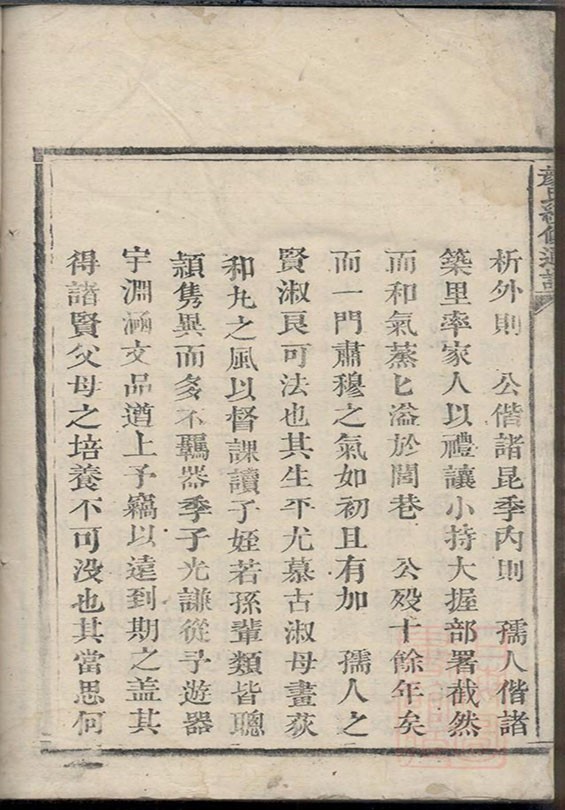 析外則　公偕諸昆季內則　孺人偕諸
築里率家人以禮讓小持大握部署截然
而和氣蒸匕溢於閭巷　公歿十餘年矣
而一門肅穆之氣如初且有加　孺人之
賢淑良可法也其生平尤慕古淑母畫荻
和丸之風以督課讀子姪若孫輩類皆聰
頴雋異而多不羈器季子光謙從予遊器
宇淵涵文品遒上予竊以遠到期之盖其
得諸賢父母之培養不可没也其當思何